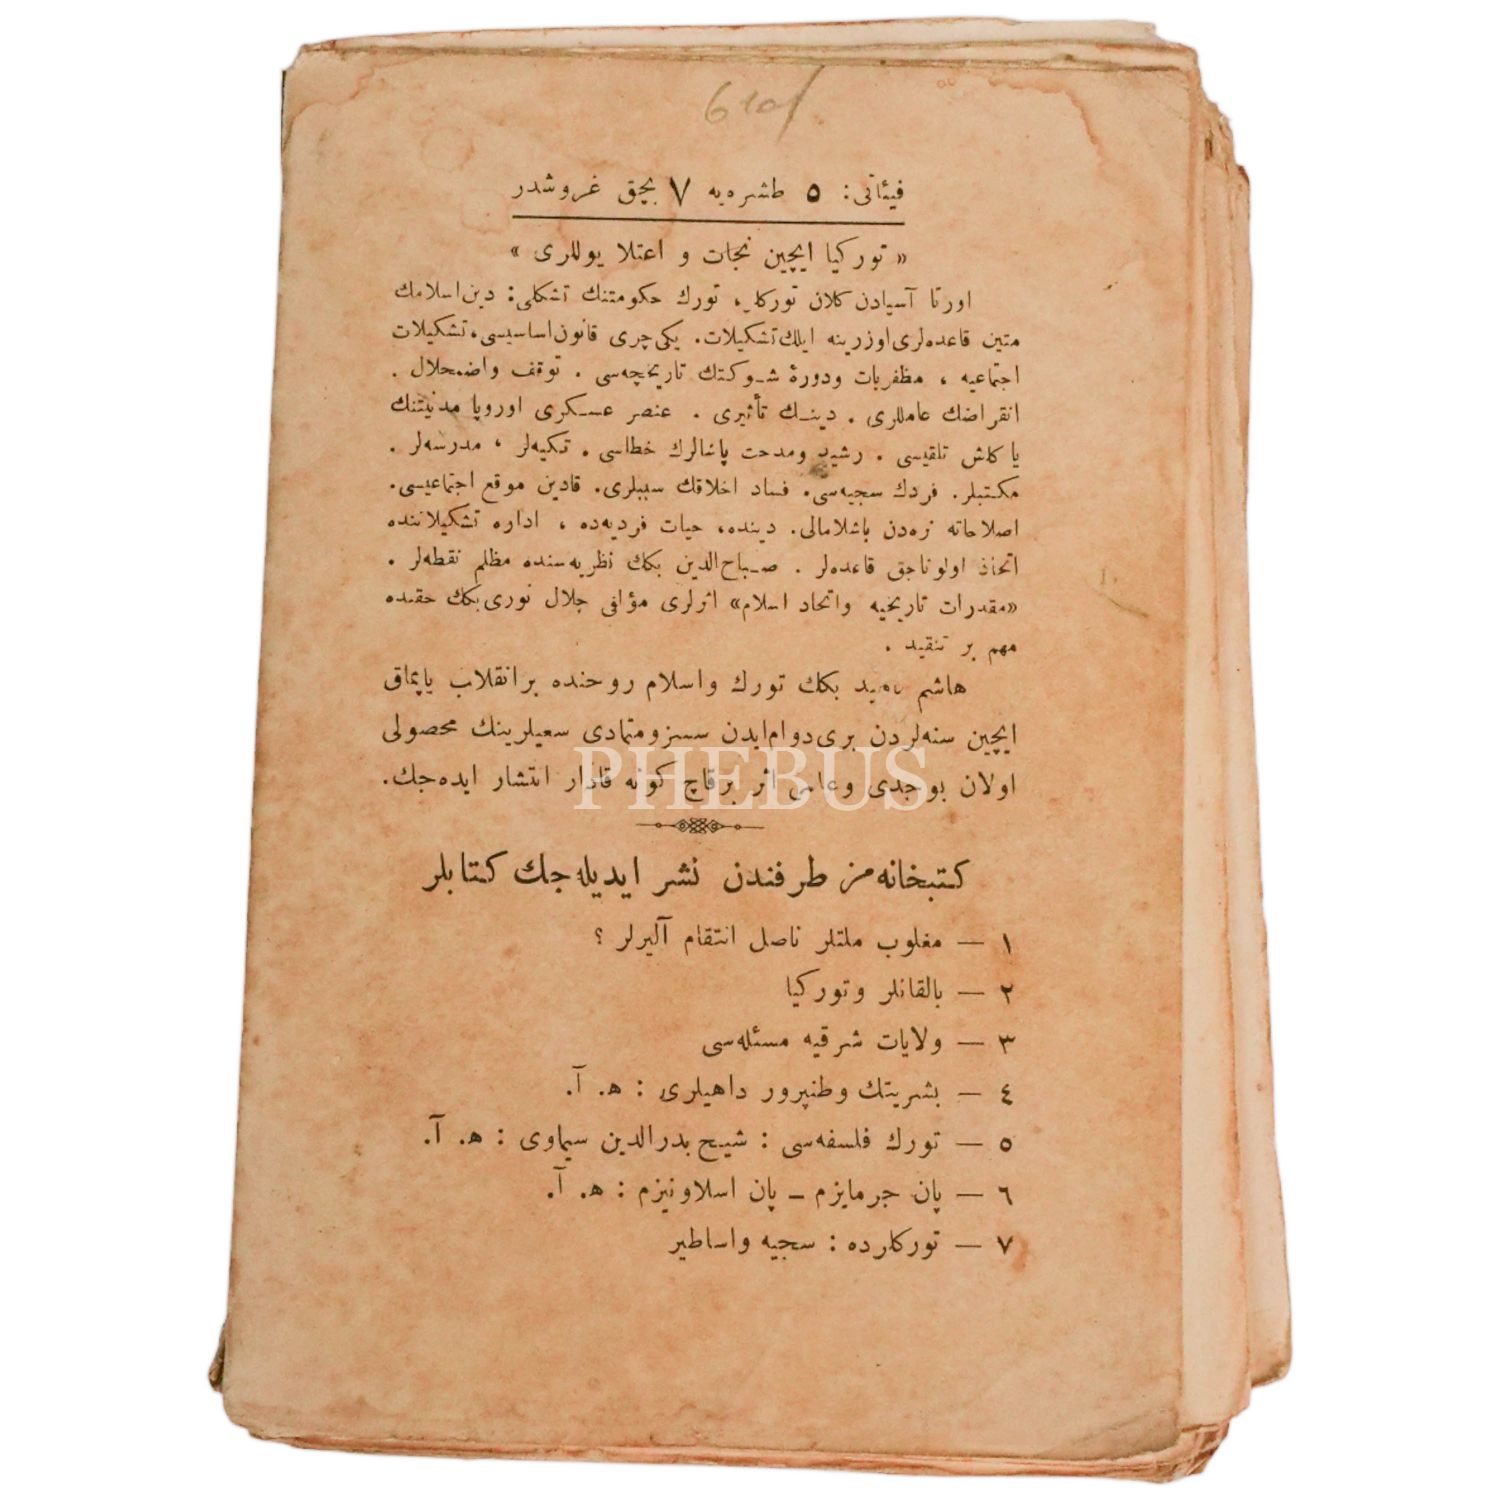 فيئاتى: ٥ طشره‌يه ٧ بچق غروشدر
« توركيا ايچين نجات و اعتلا يوللرى »
اورتا آسيادن كلان توركلر، تورك حكومتنك تشكلى: دين اسلامك
متين قاعده‌لرى اوزرينه ايلك تشكيلات. يكى چرى قانون اساسيسى، تشكيلات
اجتماعيه ، مظفريات ودورۀ شوكتك تاريخچه‌سى . توقف واضمحلال .
انقراضك عامللرى . دينك تأثيرى . عنصر عسكرى اوروپا مدنيتنك
ياكلش تلقيسى . رشيد ومدحت پاشالرك خطاسى . تكيه‌لر ، مدرسه‌لر .
مكتبلر. فردك سجيه‌سى. فساد اخلاقك سببلرى. قادين موقع اجتماعيسى.
اصلاحاته نره‌دن باشلامالى. دينده، حيات فرديه‌ده ، اداره تشكيلاتنده
اتخاذ اولوناجق قاعده‌لر . صباح‌الدين بكك نظريه‌سنده مظلم نقطه‌لر .
«مقدرات تاريخيه واتحاد اسلام» اثرلرى مؤلفى جلال نورى بكك حقنده
مهم بر تنقيد .
هاشم ناهيد بكك تورك واسلام روحنده بر انقلاب ياپماق
ايچين سنه‌لردن برى دوام ايدن سسز ومتمادى سعيلرينك محصولى
اولان بو جدى و علمى اثر بر قاچ كونه قادار انتشار ايده‌جك.
كتبخانه‌مز طرفندن نشر ايديله‌جك كتابلر
١ — مغلوب ملتلر ناصل انتقام آليرلر ؟
٢ — بالقانلر وتوركيا
٣ — ولايات شرقيه مسئله‌سى
٤ — بشريتك وطنپرور داهيلرى : ه. آ.
٥ — تورك فلسفه‌سى : شيخ بدرالدين سيماوى : ه. آ.
٦ — پان جرمايزم ـ پان اسلاونيزم : ه. آ.
٧ — توركلرده : سجيه واساطير
PHEBUS